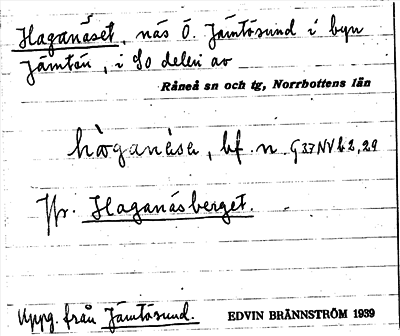 Haganäset, näs Ö. Jämtösund i byn
Jämtön, i SO delen av
Råneå sn och tg, Norrbottens län
hàganèsa, bf. n. G 33 NV b 2, 29
Jfr. Haganäsberget.
Uppg. från Jämtösund. EDVIN BRÄNNSTRÖM 1939